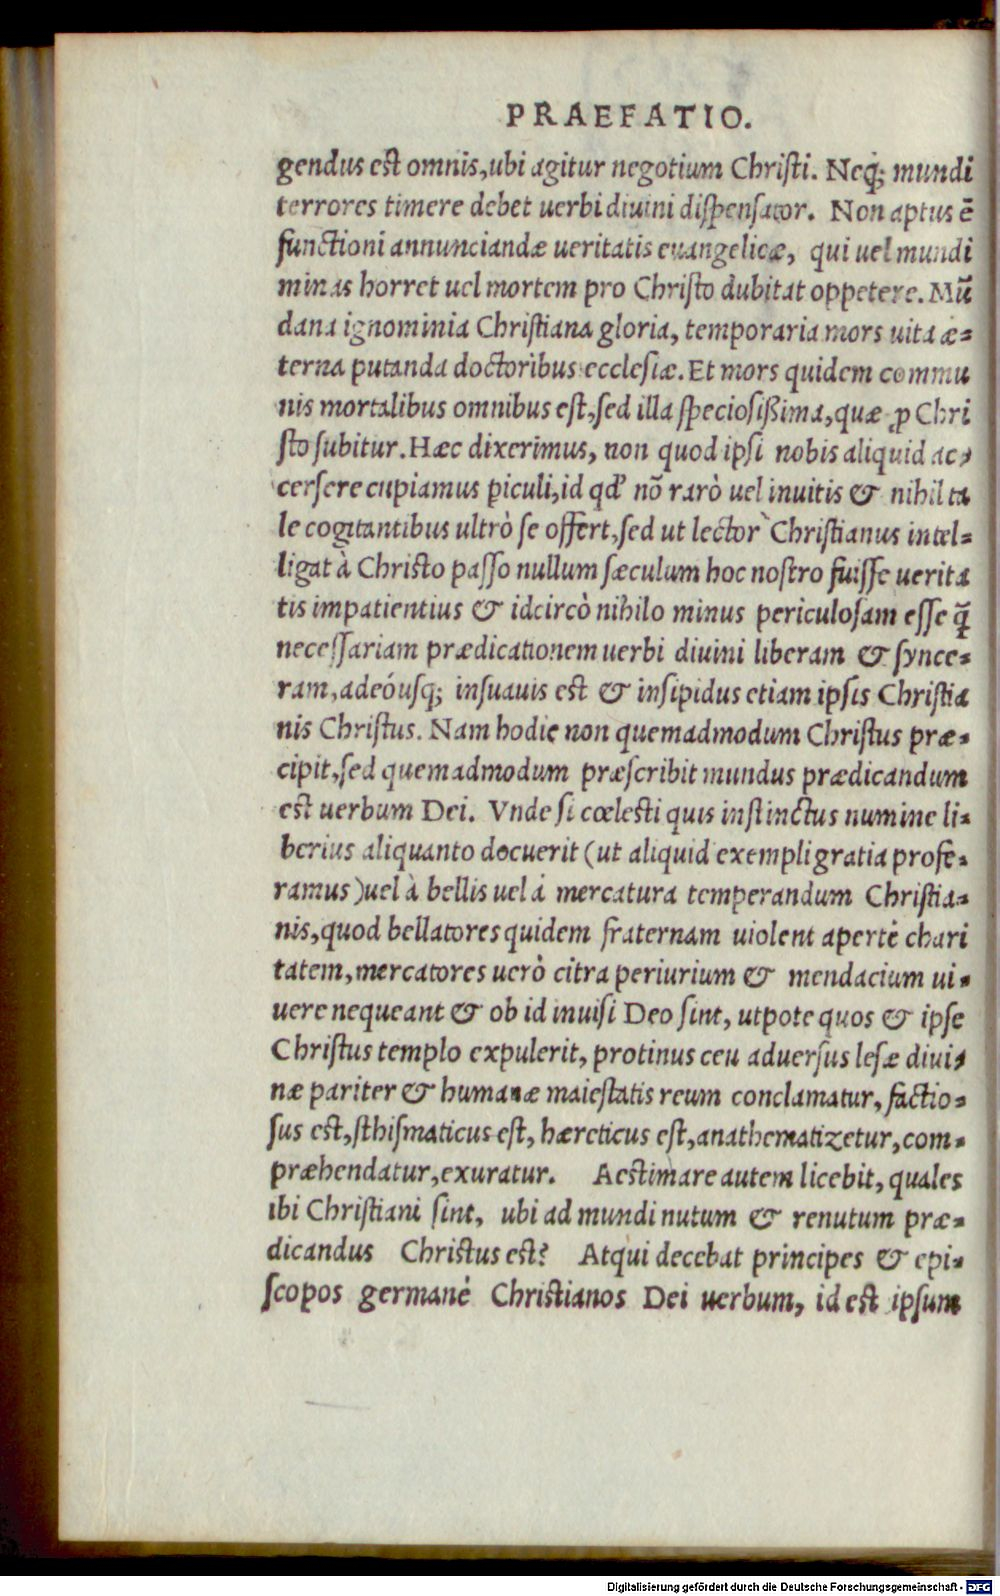 PRAEFATIO.
gendus est omnis, ubi agitur negotium Christi. Neq; mundi
terrores timere debet uerbi diuini dispensator. Non aptus ē
functioni annunciandæ ueritatis euangelicæ, qui uel mundi
minas horret uel mortem pro Christo dubitat oppetere. Mū
dana ignominia Christiana gloria, temporaria mors uita æ-
terna putanda doctoribus ecclesiæ. Et mors quidem commu
nis mortalibus omnibus est, sed illa speciosißima, quæ ꝓ Chri
sto subitur. Hæc dixerimus, non quod ipsi nobis aliquid ac-
cersere cupiamus ꝑiculi, id qd' nō rarò uel inuitis & nihil ta
le cogitantibus ultrò se offert, sed ut lector Christianus intel-
ligat à Christo passo nullum sæculum hoc nostro fuisse uerita
tis impatientius & idcircò nihilo minus periculosam esse q̄
necessariam prædicationem uerbi diuini liberam & synce-
ram, adeóusq; insuauis est & insipidus etiam ipsis Christia
nis Christus. Nam hodie non quemadmodum Christus præ-
cipit, sed quemadmodum præscribit mundus prædicandum
est uerbum Dei. Vnde si cœlesti quis instinctus numine li-
berius aliquanto docuerit (ut aliquid exempli gratia profe-
ramus) uel à bellis uel á mercatura temperandum Christia-
nis, quod bellatores quidem fraternam uiolent apertè chari
tatem, mercatores uerò citra periurium & mendacium ui-
uere nequeant & ob id inuisi Deo sint, utpote quos & ipse
Christus templo expulerit, protinus ceu aduersus lesæ diui-
næ pariter & humanæ maiestatis reum conclamatur, factio-
sus est, sthismaticus est, hæreticus est, anathematizetur, com-
præhendatur, exuratur. Aestimare autem licebit, quales
ibi Christiani sint, ubi ad mundi nutum & renutum præ-
dicandus Christus est? Atqui decebat principes & epi-
scopos germanè Christianos Dei uerbum, id est ipsum
Digitalisierung gefördert durch die Deutsche Forschungsgemeinschaft - DFG